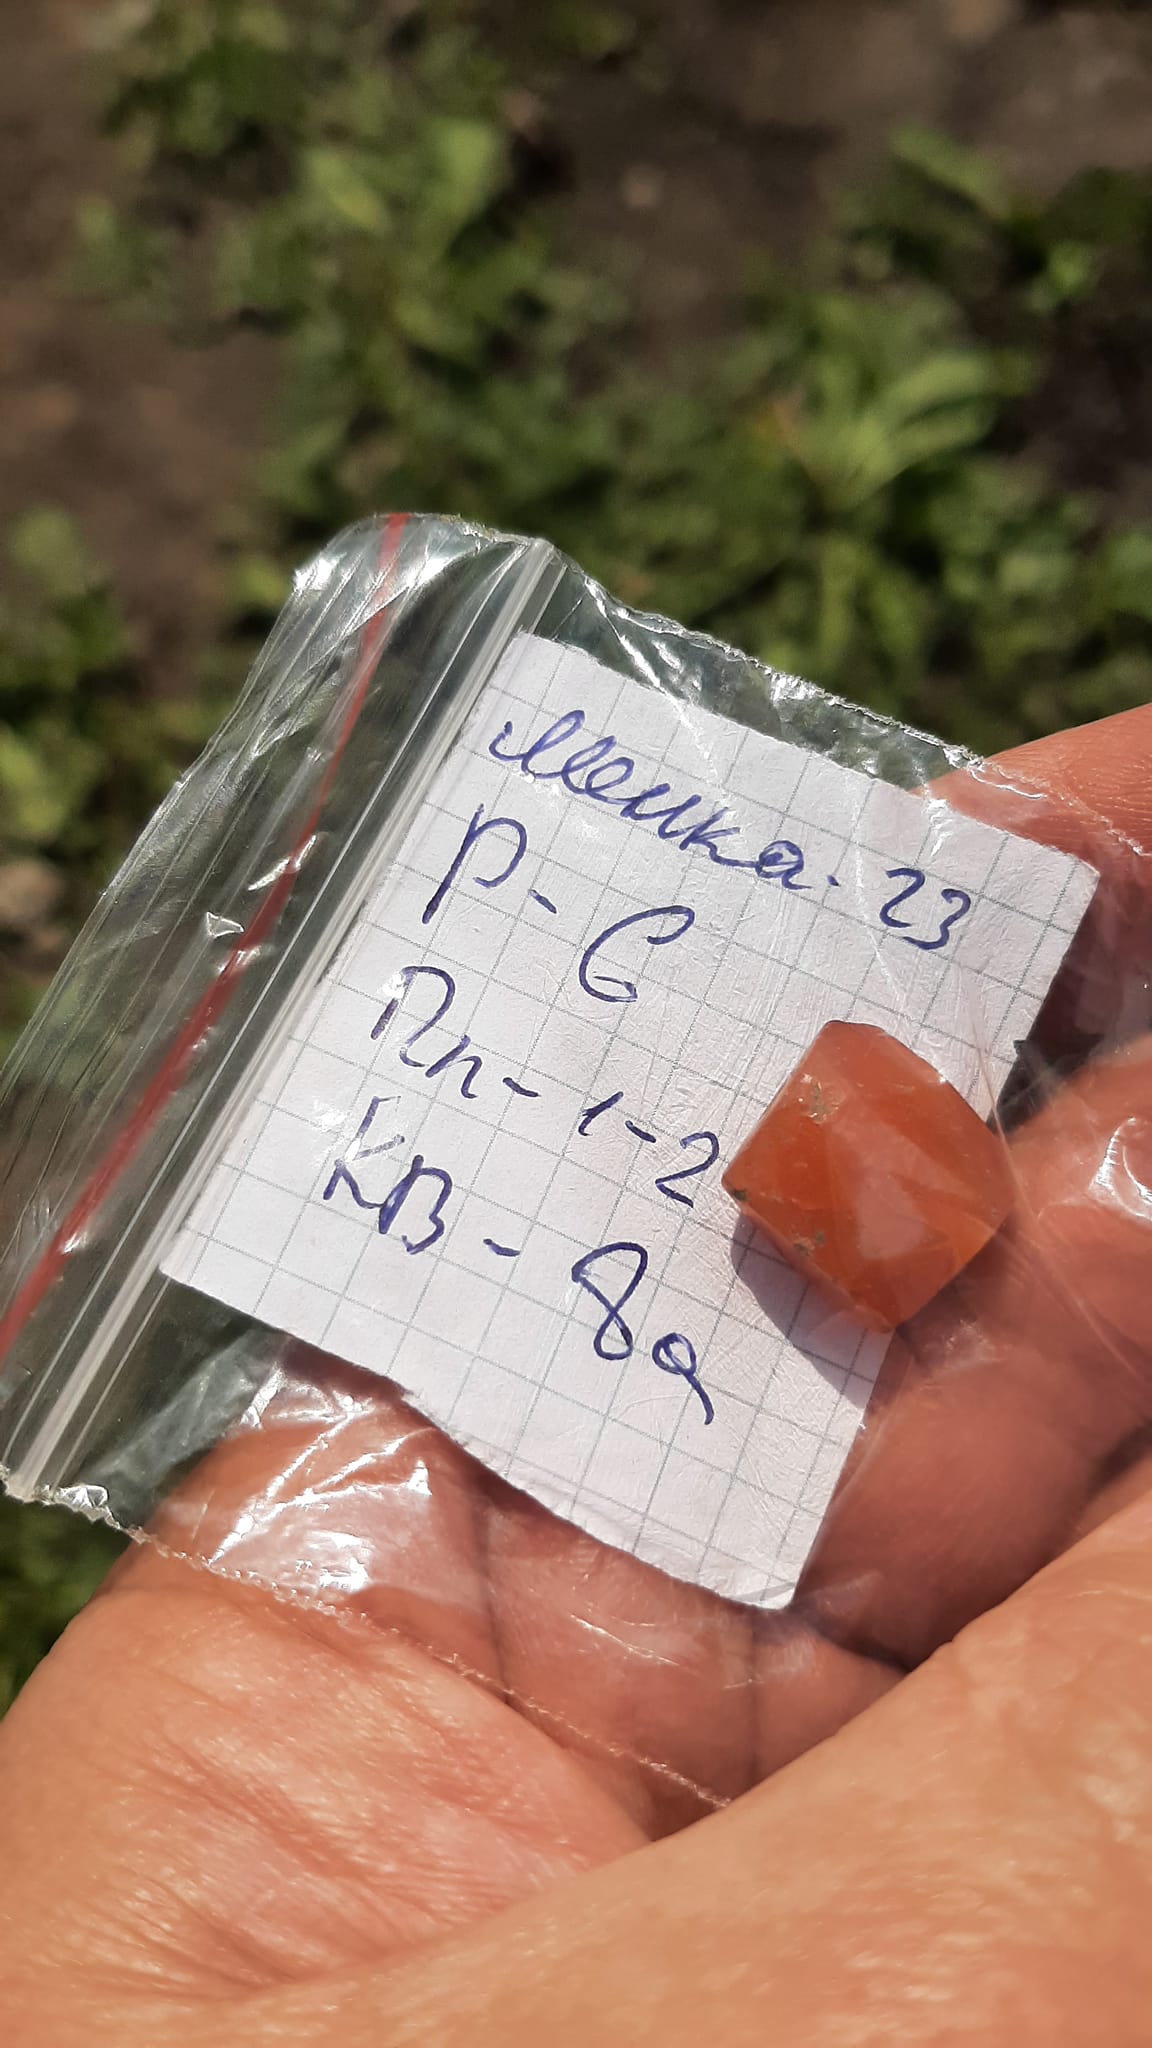 Мешка - 23
Р - 6
Пл - 1-2
КВ - 8а